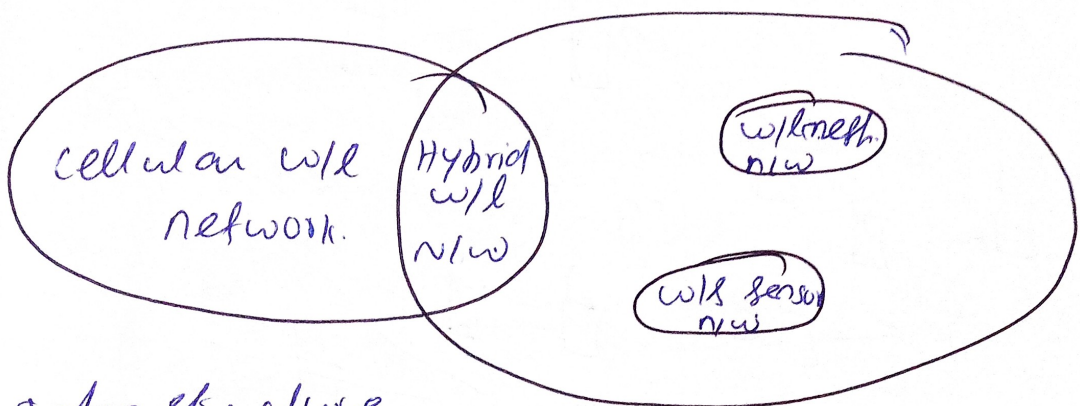 cellular w/l
network.
Hybrid
w/l
N/W
w/l mesh.
n/w
w/s sensor
n/w